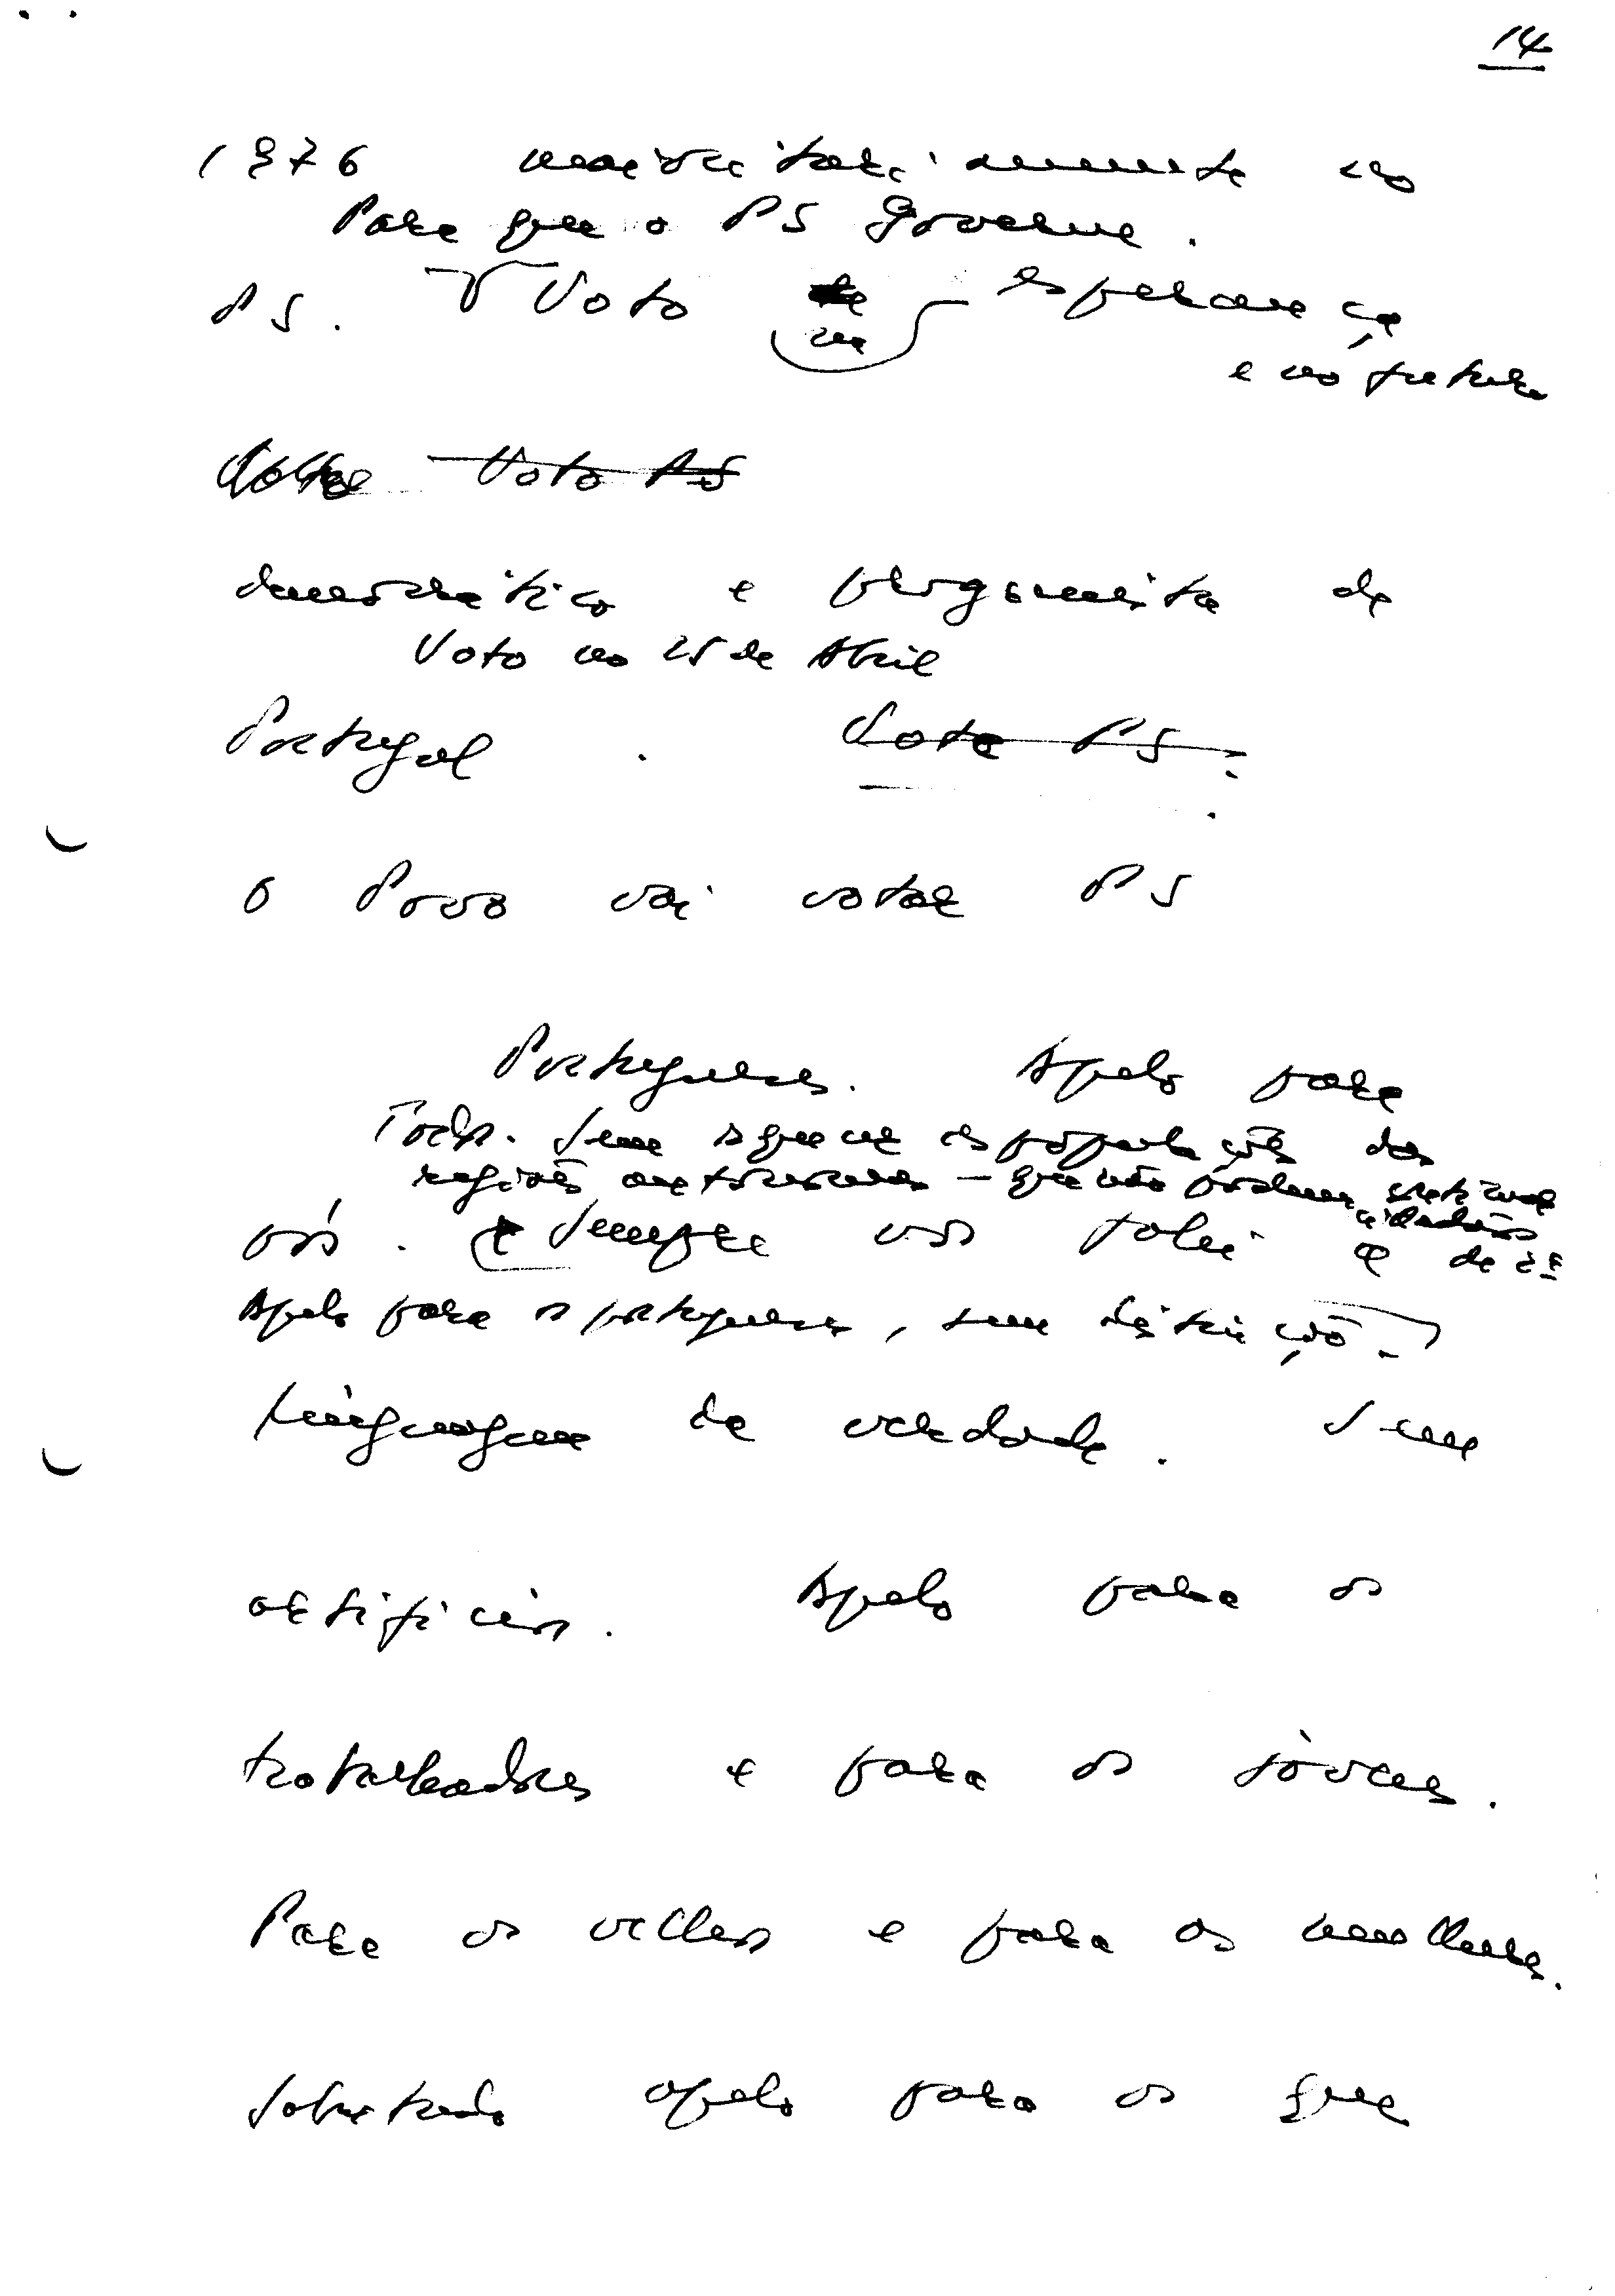 14
1976 maioritariamente no
Para que o PS Governe.
PS. Voto de esperança
na
e no futuro
Volta Voto PS
democrático e progressista de
Voto no 25 de Abril
Portugal. Vote PS.
O Povo vai votar PS
Portugueses. Apelo para
Todos. Sem esquecer as populações das
regiões autónomas – que não podem continuar
cidadãos
vós. e Sempre vos falei a de 2ª
Apelo para os portugueses, sem distinção.
linguagem de verdade. Sem
artifícios. Apelo para os
trabalhadores e para os jóvens.
Para os velhos e para as mulheres.
Sobretudo apelo para os que